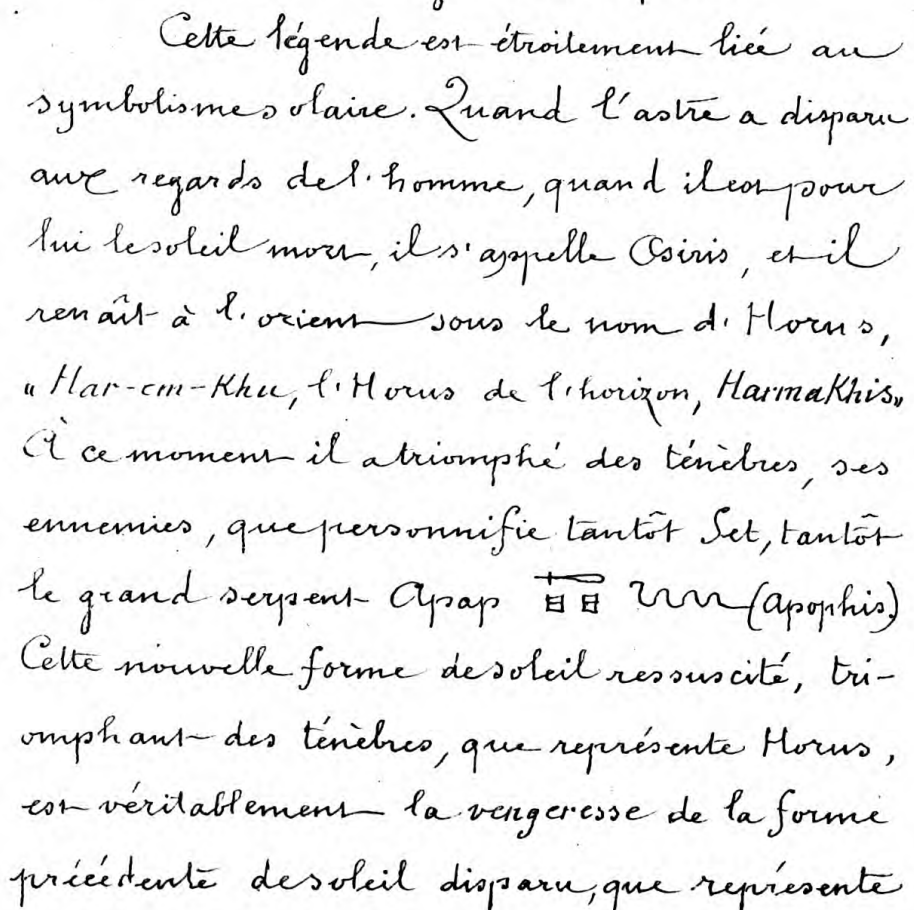 Cette légende est étroitement liée au
symbolisme solaire. Quand l'astre a disparu
aux regards de l'homme, quand il est pour
lui le soleil mort, il s'appelle Osiris, et il
renaît à l'orient sous le nom d'Horus,
« Har-em-Khu, l'Horus de l'horizon, HarmaKhis»
À ce moment il a triomphé des ténèbres, ses
ennemies, que personnifie tantôt Set, tantôt
le grand serpent Apap (Apophis)
Cette nouvelle forme de soleil ressuscité, tri-
omphant des ténèbres, que représente Horus,
est véritablement la vengeresse de la forme
précédente de soleil disparu, que représente